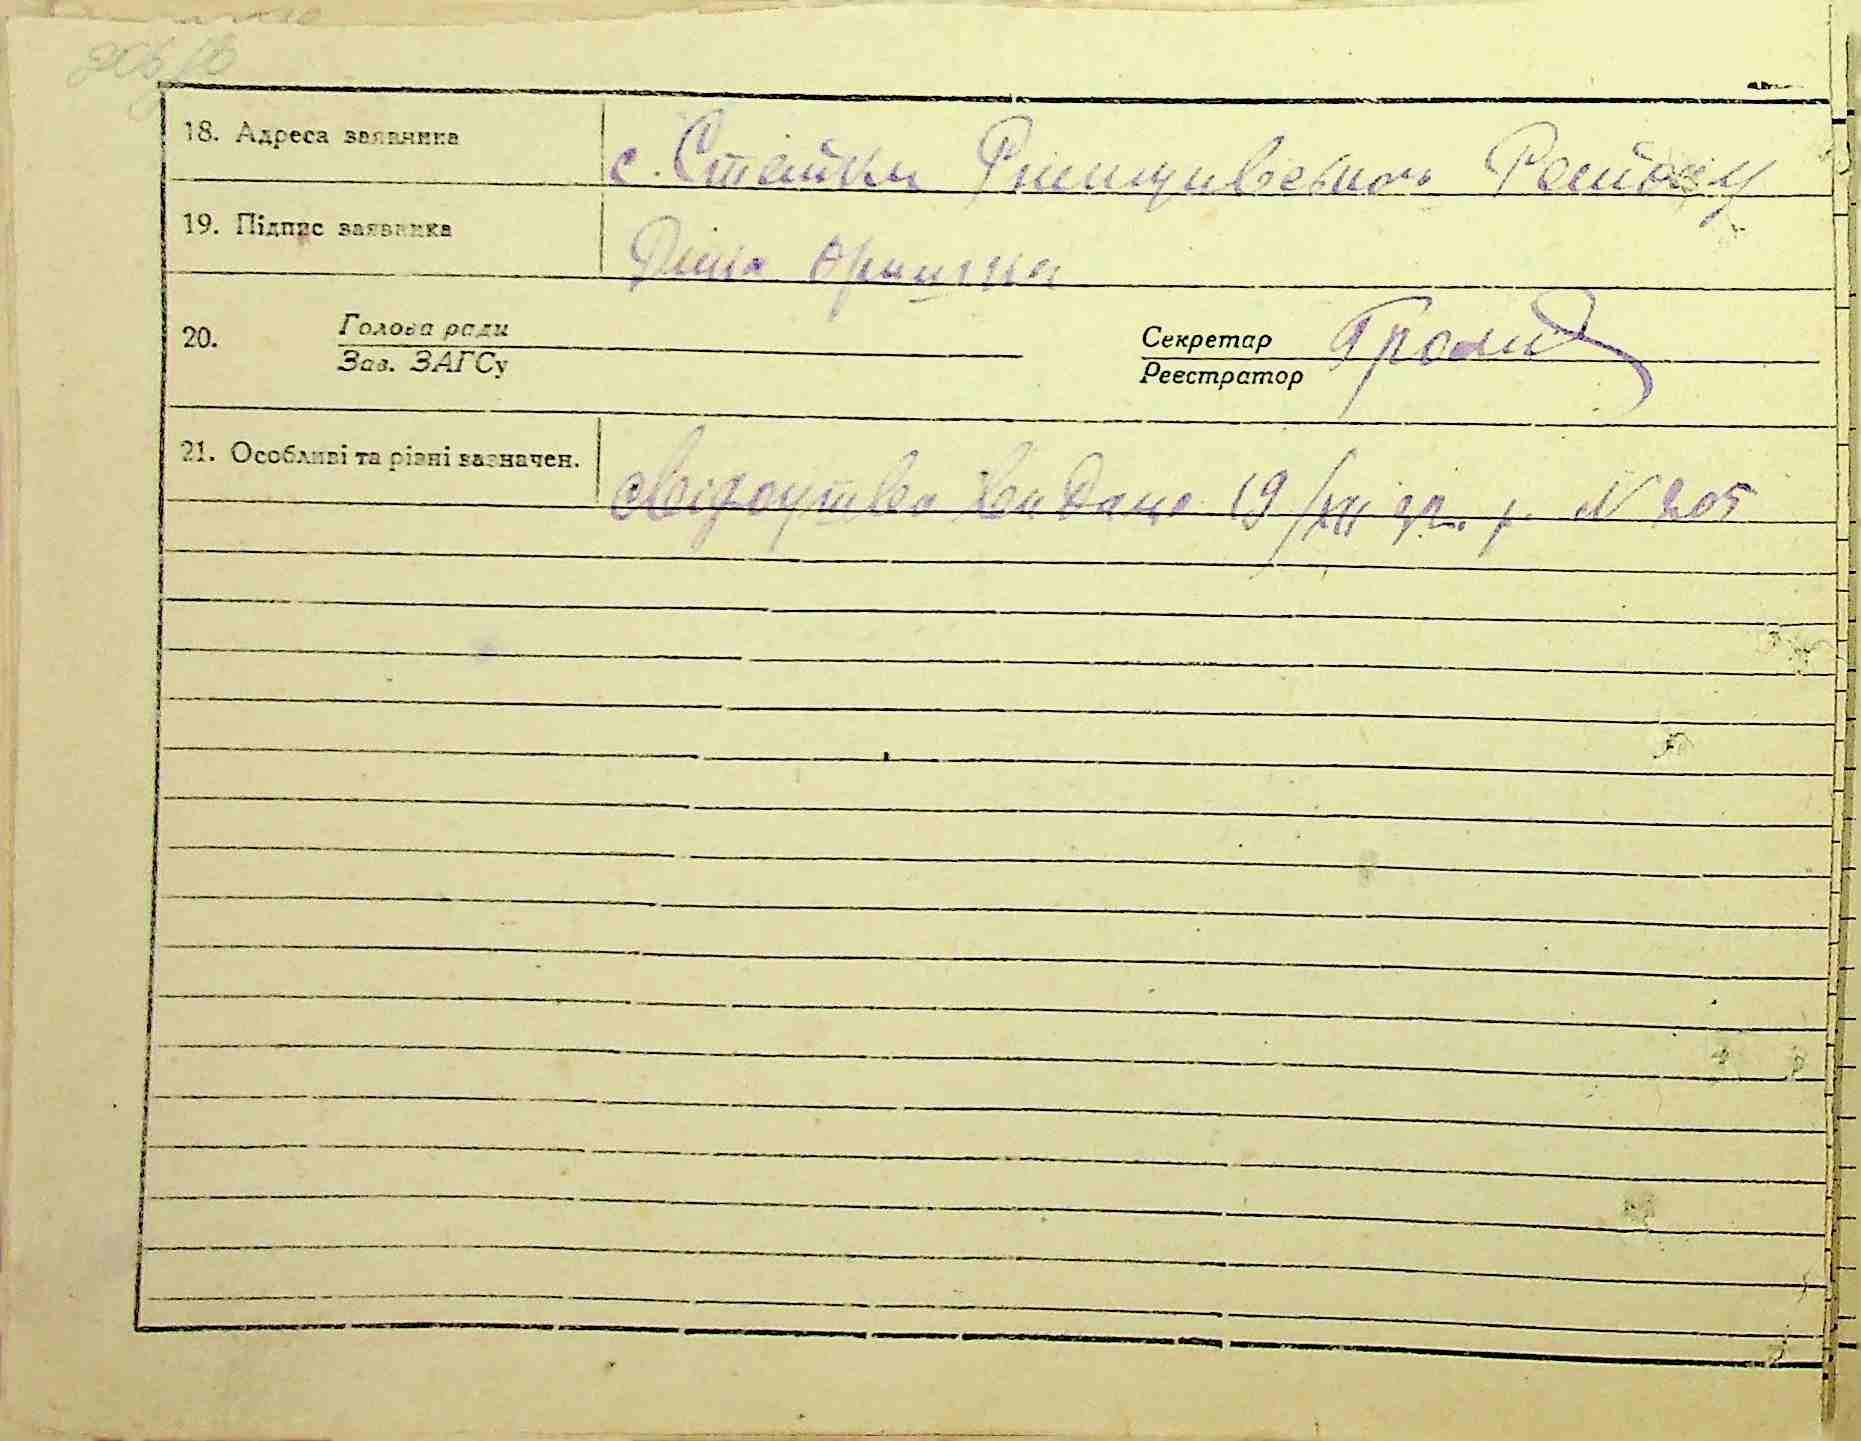 18. Адреса заявника
с. Стайки Ржищивського Району
19. Підпис заявника
20. Голова ради
Зав. ЗАГСу
Секретар
Реєстратор
21. Особливі та різні зазначен.
свідоцтво видано 19/XII р. N 205